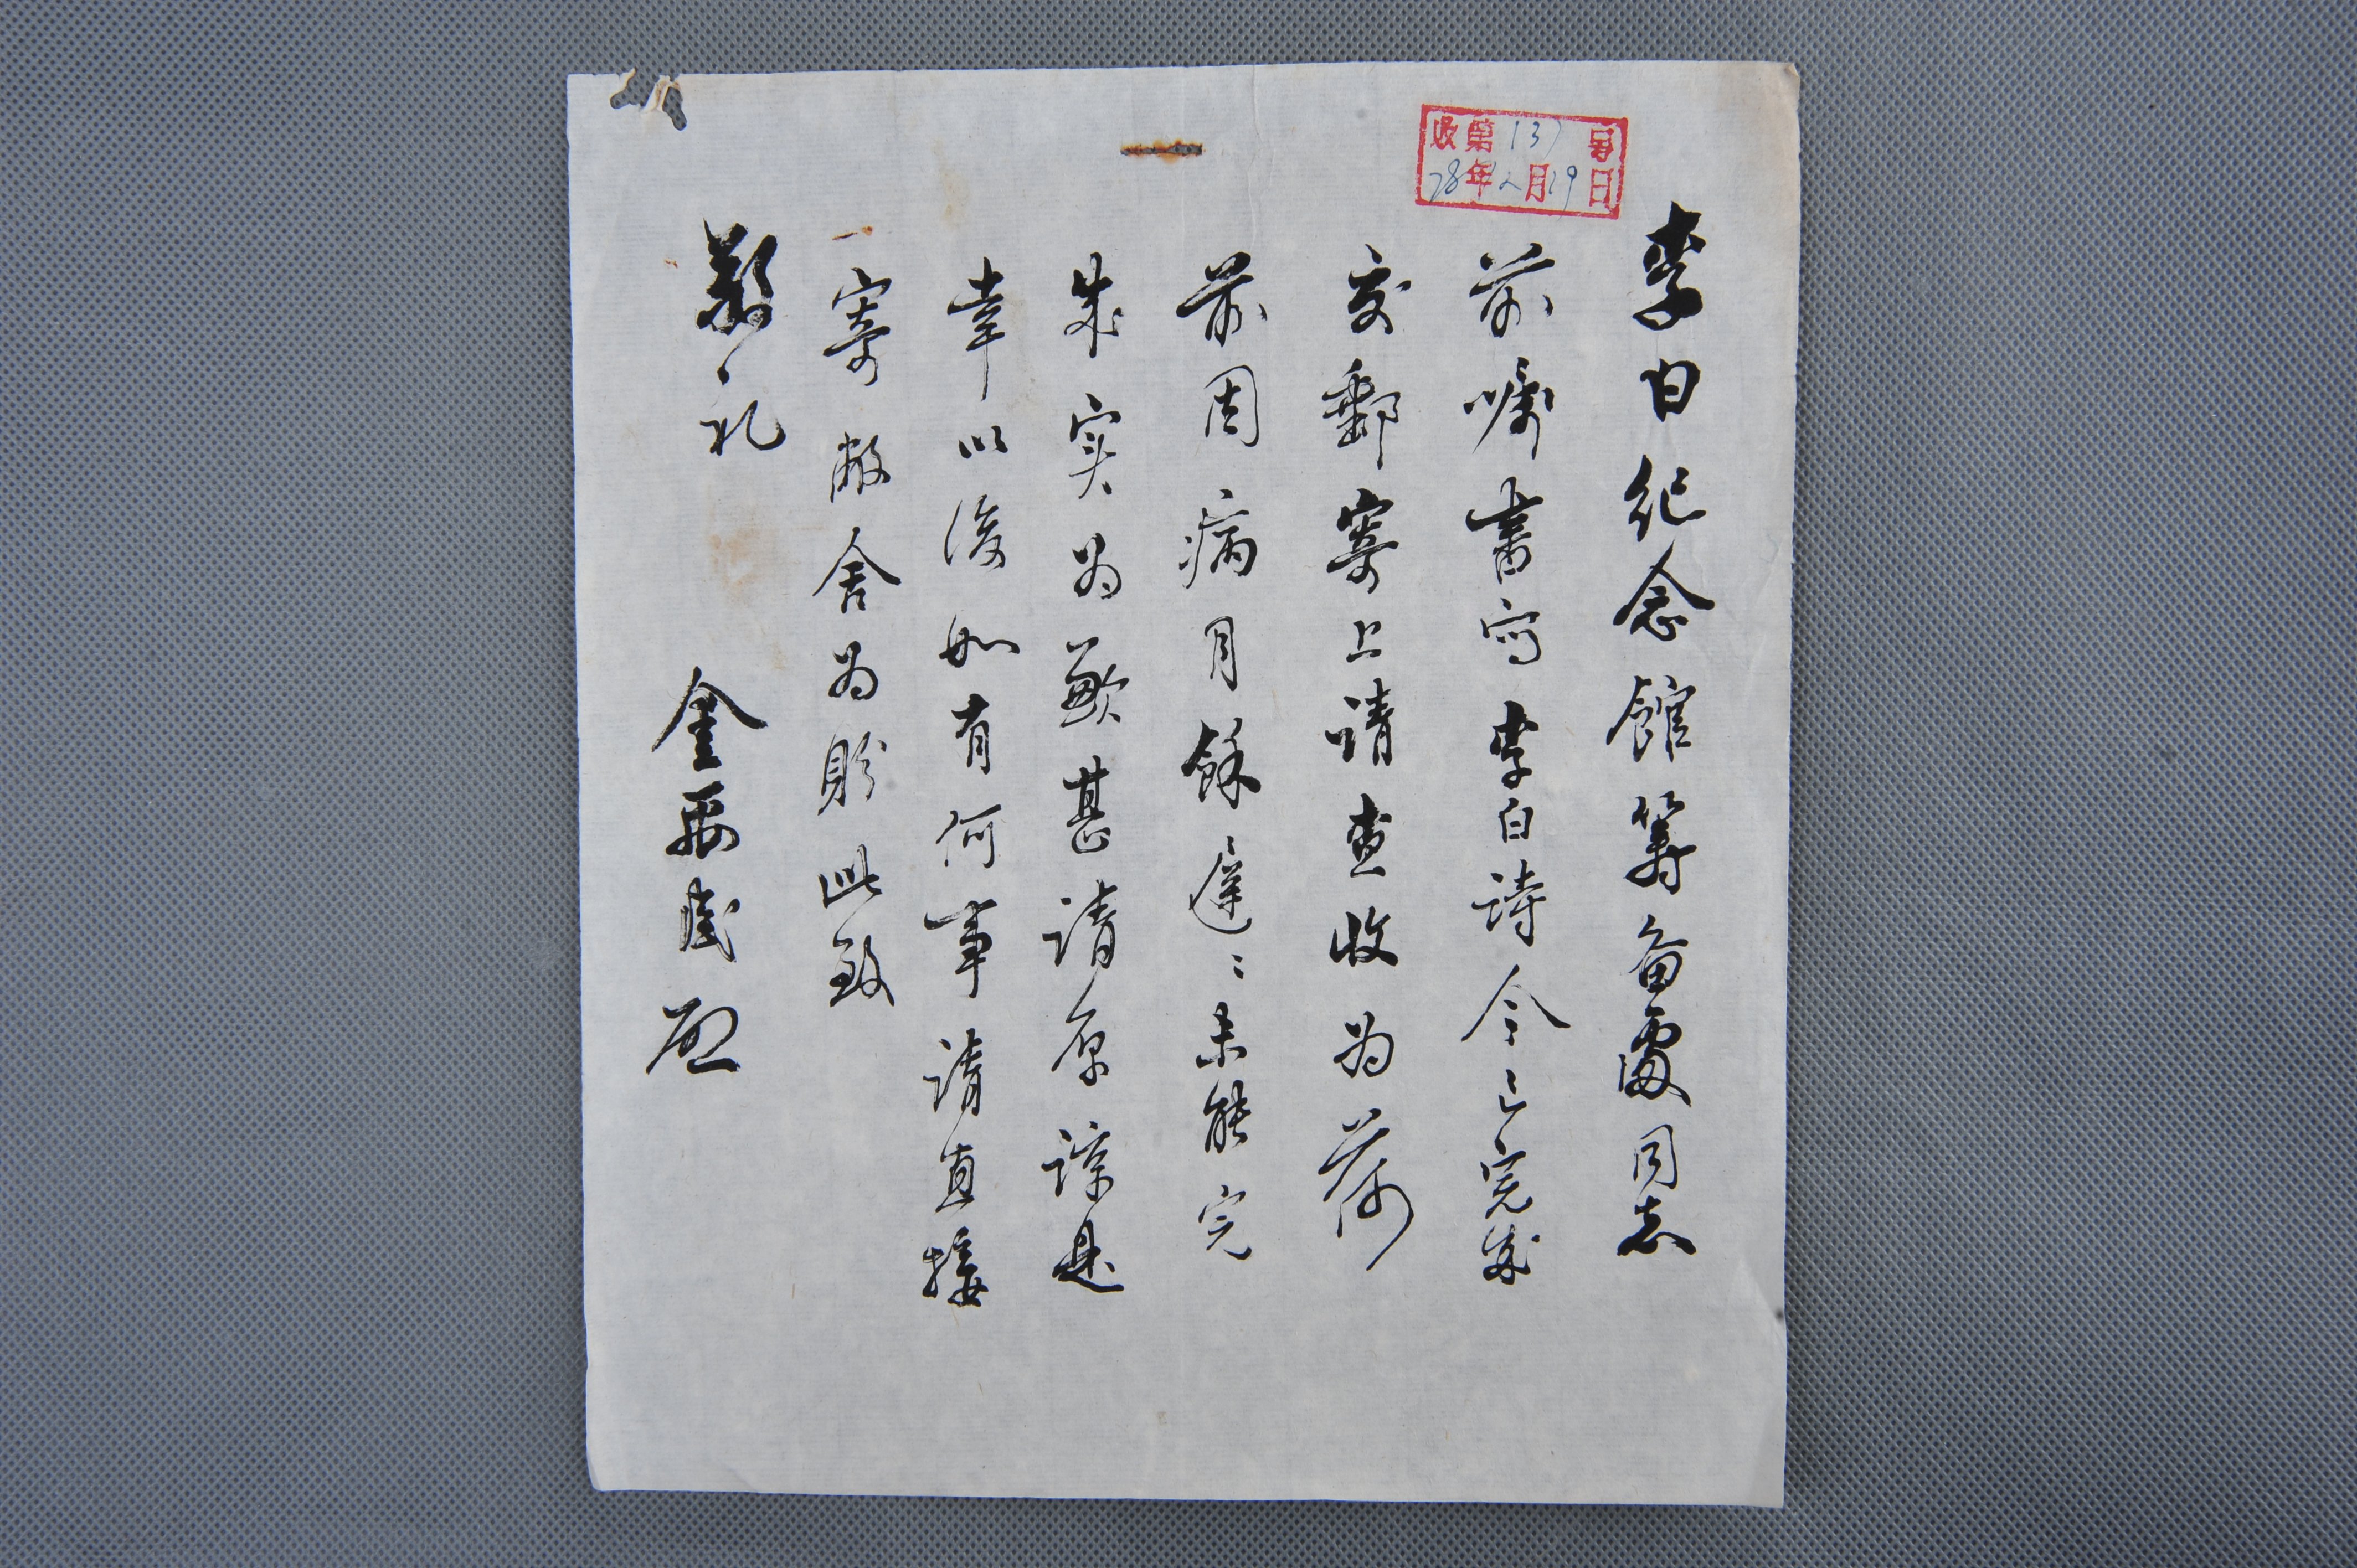 收第137号
78年2月19日
李白纪念館筹备處同志
前嘱書写李白诗今已完成
交郵寄上请查收为荷
前因病月餘遲〻未能完
成实为歉甚请原諒是
幸以後如有何事请直接
寄敝舍为盼此致
敬礼
金禹民启